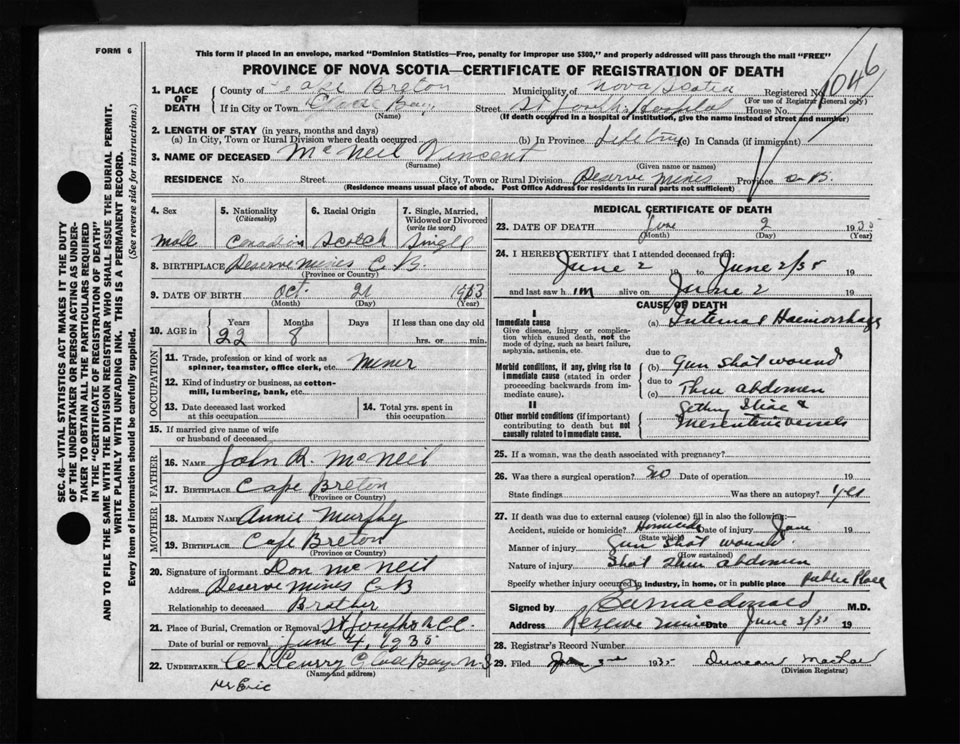 FORM 6
This form if placed in an envelope, marked "Dominion Statistics—Free, penalty for improper use $300," and properly addressed will pass through the mail "FREE"
PROVINCE OF NOVA SCOTIA—CERTIFICATE OF REGISTRATION OF DEATH
1046
1. PLACE OF DEATH
County of Cape Breton Municipality of Nova Scotia Registered No.
(For use of Registrar General only)
If in City or Town Glace Bay Street St Joseph's Hospital House No.
(Name) (If death occurred in a hospital or institution, give the name instead of street and number)
2. LENGTH OF STAY (in years, months and days)
(a) In City, Town or Rural Division where death occurred (b) In Province Life time (c) In Canada (if immigrant)
3. NAME OF DECEASED McNeil Vincent
(Surname) (Given name or names)
RESIDENCE No Street City, Town or Rural Division Reserve Mines Province C.B.
(Residence means usual place of abode. Post Office Address for residents in rural parts not sufficient)
4. Sex 5. Nationality (Citizenship) 6. Racial Origin 7. Single, Married, Widowed or Divorced (write the word)
Male Canadian Scotch Single
8. BIRTHPLACE Reserve Mines C.B.
(Province or Country)
9. DATE OF BIRTH Oct. 21 1913
(Month) (Day) (Year)
10. AGE in Years Months Days If less than one day old
22 8 hrs. or min.
OCCUPATION
11. Trade, profession or kind of work as spinner, teamster, office clerk, etc. Miner
12. Kind of industry or business, as cotton-mill, lumbering, bank, etc.
13. Date deceased last worked at this occupation
14. Total yrs. spent in this occupation
15. If married give name of wife or husband of deceased
FATHER
16. NAME John R. McNeil
17. BIRTHPLACE Cape Breton
(Province or Country)
MOTHER
18. MAIDEN NAME Annie Murphy
19. BIRTHPLACE Cape Breton
(Province or Country)
20. Signature of informant Dan McNeil
Address Reserve Mines C B
Relationship to deceased Brother
21. Place of Burial, Cremation or Removal St Josephs
Date of burial or removal June 4, 1935
22. UNDERTAKER Curry Glace Bay N.S
(Name and address)
per Eric
MEDICAL CERTIFICATE OF DEATH
23. DATE OF DEATH June 2 1935
(Month) (Day) (Year)
24. I HEREBY CERTIFY that I attended deceased from:
June 2 19 to June 2/35 19
and last saw him alive on June 2 19
CAUSE OF DEATH
I
Immediate cause
Give disease, injury or complication which caused death, not the mode of dying, such as heart failure, asphyxia, asthenia, etc.
(a) Internal Haemorrhage
due to
Morbid conditions, if any, giving rise to immediate cause (stated in order proceeding backwards from immediate cause).
(b) Gun shot wound
due to
(c) Thru abdomen
II
Other morbid conditions (if important) contributing to death but not causally related to immediate cause.
&
Mesenteric vessels
25. If a woman, was the death associated with pregnancy?
26. Was there a surgical operation? No Date of operation 19
State findings Was there an autopsy? Yes
27. If death was due to external causes (violence) fill in also the following:—
Accident, suicide or homicide? Homicide Date of injury June 19
(State which)
Manner of injury Gun shot wound
(How sustained)
Nature of injury Shot thru abdomen
Specify whether injury occurred in industry, in home, or in public place Public Place
Signed by MacDonald M.D.
Address Reserve Mines Date June 2/35 19
28. Registrar's Record Number
29. Filed June 3rd 1935 Duncan
(Division Registrar)
SEC. 46—VITAL STATISTICS ACT MAKES IT THE DUTY OF THE UNDERTAKER OR PERSON ACTING AS UNDERTAKER TO OBTAIN ALL THE PARTICULARS REQUIRED IN THE "CERTIFICATE OF REGISTRATION OF DEATH" AND TO FILE THE SAME WITH THE DIVISION REGISTRAR WHO SHALL ISSUE THE BURIAL PERMIT.
WRITE PLAINLY WITH UNFADING INK. THIS IS A PERMANENT RECORD.
Every item of information should be carefully supplied. (See reverse side for instructions.)